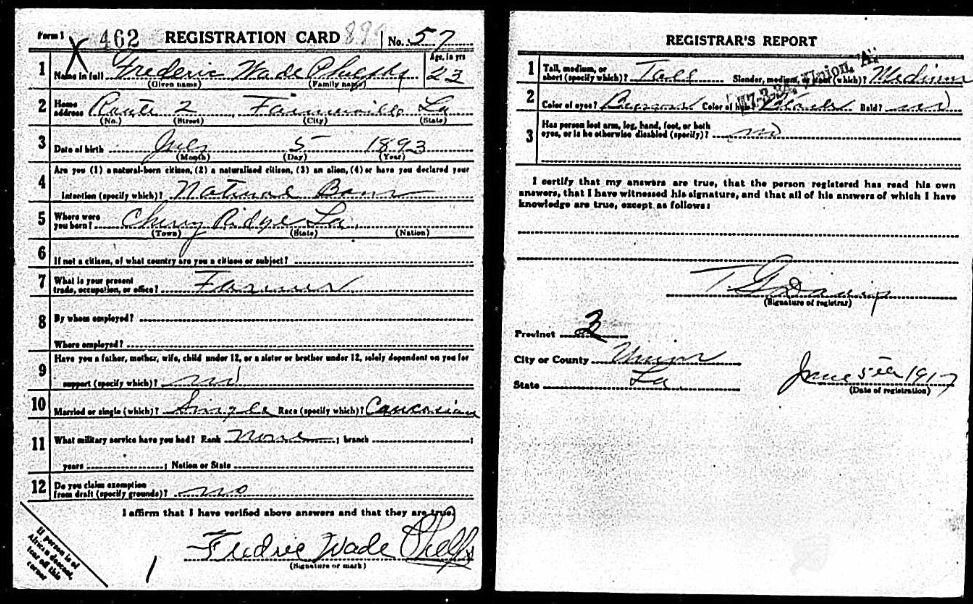 Form 1 462 REGISTRATION CARD No. 57
1 Name in full Frederic Wade Phelps Age, in yrs 23
(Given name) (Family name)
2 Home address Route 2 Farmerville La
(No.) (Street) (City) (State)
3 Date of birth July 5 1893
(Month) (Day) (Year)
4 Are you (1) a natural-born citizen, (2) a naturalized citizen, (3) an alien, (4) or have you declared your
intention (specify which)? Natural Born
5 Where were you born? Cherry Ridge La.
(Town) (State) (Nation)
6 If not a citizen, of what country are you a citizen or subject?
7 What is your present trade, occupation, or office? Farmer
8 By whom employed?
Where employed?
9 Have you a father, mother, wife, child under 12, or a sister or brother under 12, solely dependent on you for
support (specify which)? no
10 Married or single (which)? Single Race (specify which)? Caucasian
11 What military service have you had? Rank none ; branch ;
years ; Nation or State
12 Do you claim exemption from draft (specify grounds)? no
I affirm that I have verified above answers and that they are true.
Fredric Wade Phelps
(Signature or mark)
If person is of
African descent,
tear off this
corner
REGISTRAR'S REPORT
1 Tall, medium, or short (specify which)? Tall Slender, medium, or stout (which)? Medium
2 Color of eyes? Brown Color of hair? Black Bald? no
3 Has person lost arm, leg, hand, foot, or both
eyes, or is he otherwise disabled (specify)? no
I certify that my answers are true, that the person registered has read his own
answers, that I have witnessed his signature, and that all of his answers of which I have
knowledge are true, except as follows:
(Signature of registrar)
Precinct 3
City or County Union
State La.
June 5th 1917
(Date of registration)